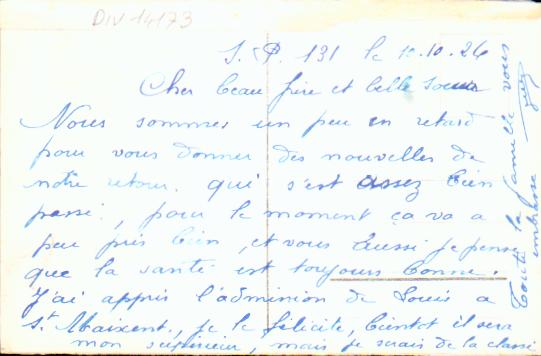 DIV 14173
S.P. 131 le 10.10.26
Cher beau frère et belle soeur
Nous sommes un peu en retard
pour vous donner des nouvelles de
notre retour. qui s'est assez bien
passé, pour le moment ça va a
peu près bien, et vous aussi je pense
que la santé est toujours bonne.
J'ai appris l'admission de Louis a
St Maixent, je le félicite, bientot il sera
mon supérieur, mais je serais de la classe
Toute la famille vous
embrasse